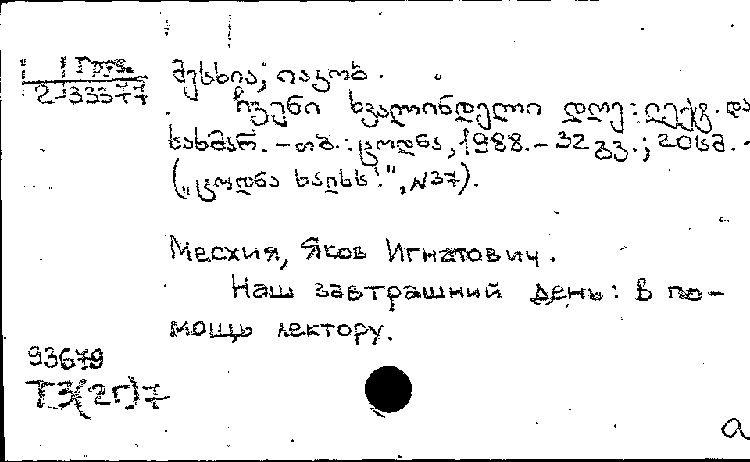 Груз.
2-33577
მესხია, იაკობ.
ჩვენი ხვალინდელი დღე: ლექტ. და-
სახმარ. - თბ.: ცოდნა, 1988. - 32 გვ.; 20 სმ. -
("ცოდნა ხალხს!", N37).
Месхия, Яков Игнатович.
Наш завтрашний день: В по-
мощь лектору.
93679
Т3(2Г)7
а